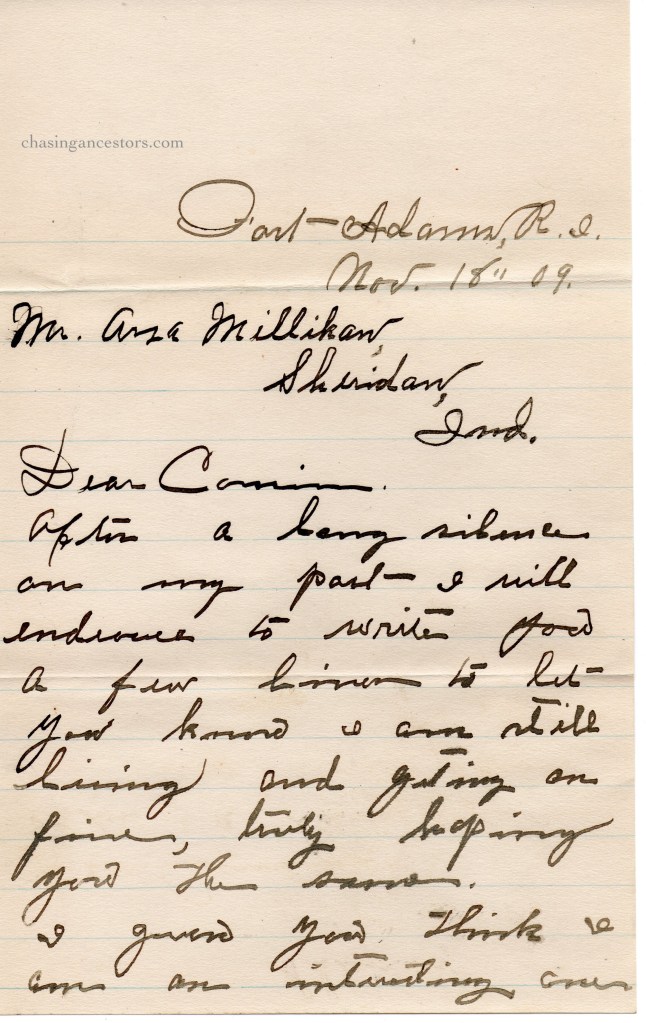 chasingancestors.com
Fort Adams, R.I.
Nov. 18" 09.
Mr. Arza Millikan,
Sheridan,
Ind.
Dear Cousin.
After a long silence
on my part I will
endeavee to write you
a few lines to let
you know I am still
living and geting on
fine, truly hoping
you the same.
I guess you think I
am an intresting one